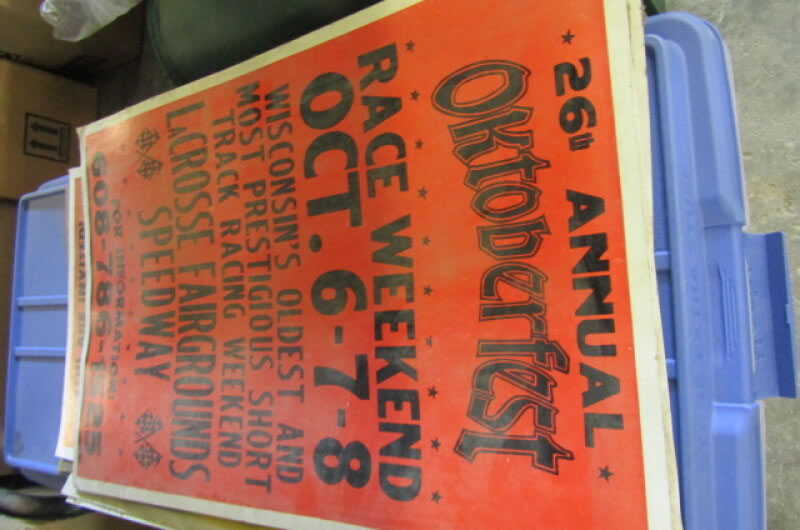 26th ANNUAL
Oktoberfest
RACE WEEKEND
OCT. 6-7-8
WISCONSIN'S OLDEST AND
MOST PRESTIGIOUS SHORT
TRACK RACING WEEKEND
LACROSSE FAIRGROUNDS
SPEEDWAY
FOR INFORMATION:
608-786-1525